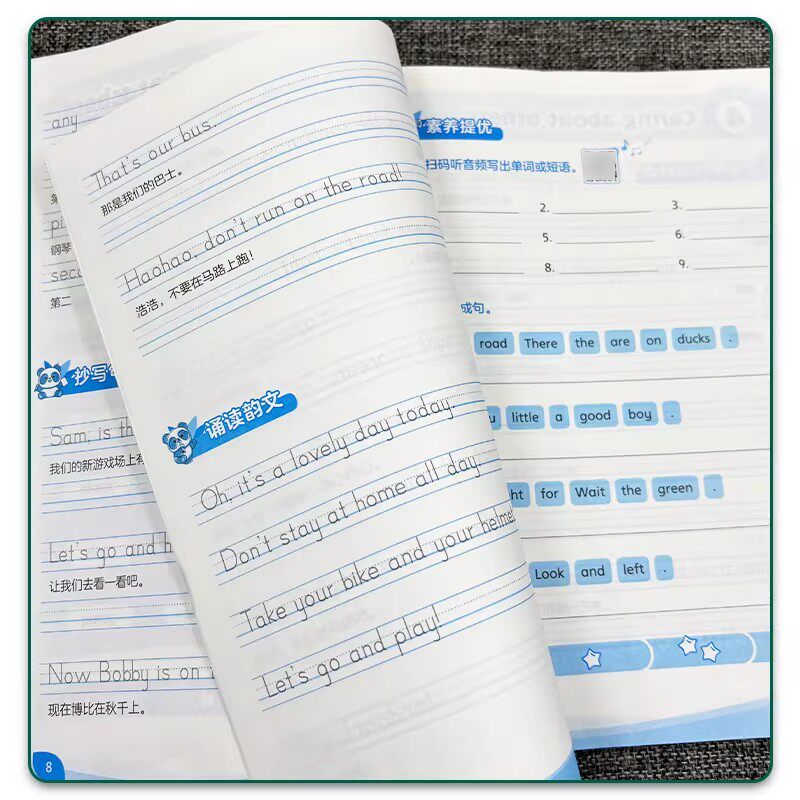 any
第
pi
钢琴
seco
第二
抄写
Sam, is th
我们的新游戏场上有
Let's go and h
让我们去看一看吧。
Now Bobby is on
现在博比在秋千上。
8
That's our bus.
那是我们的巴士。
Haohao, don't run on the road!
浩浩，不要在马路上跑！
诵读韵文
Oh, it's a lovely day today.
Don't stay at home all day.
Take your bike and your helmet
Let's go and play!
素养提优
扫码听音频写出单词或短语。
2. 3.
5. 6.
8. 9.
成句。
road There the are on ducks .
u little a good boy .
ht for Wait the green .
Look and left .